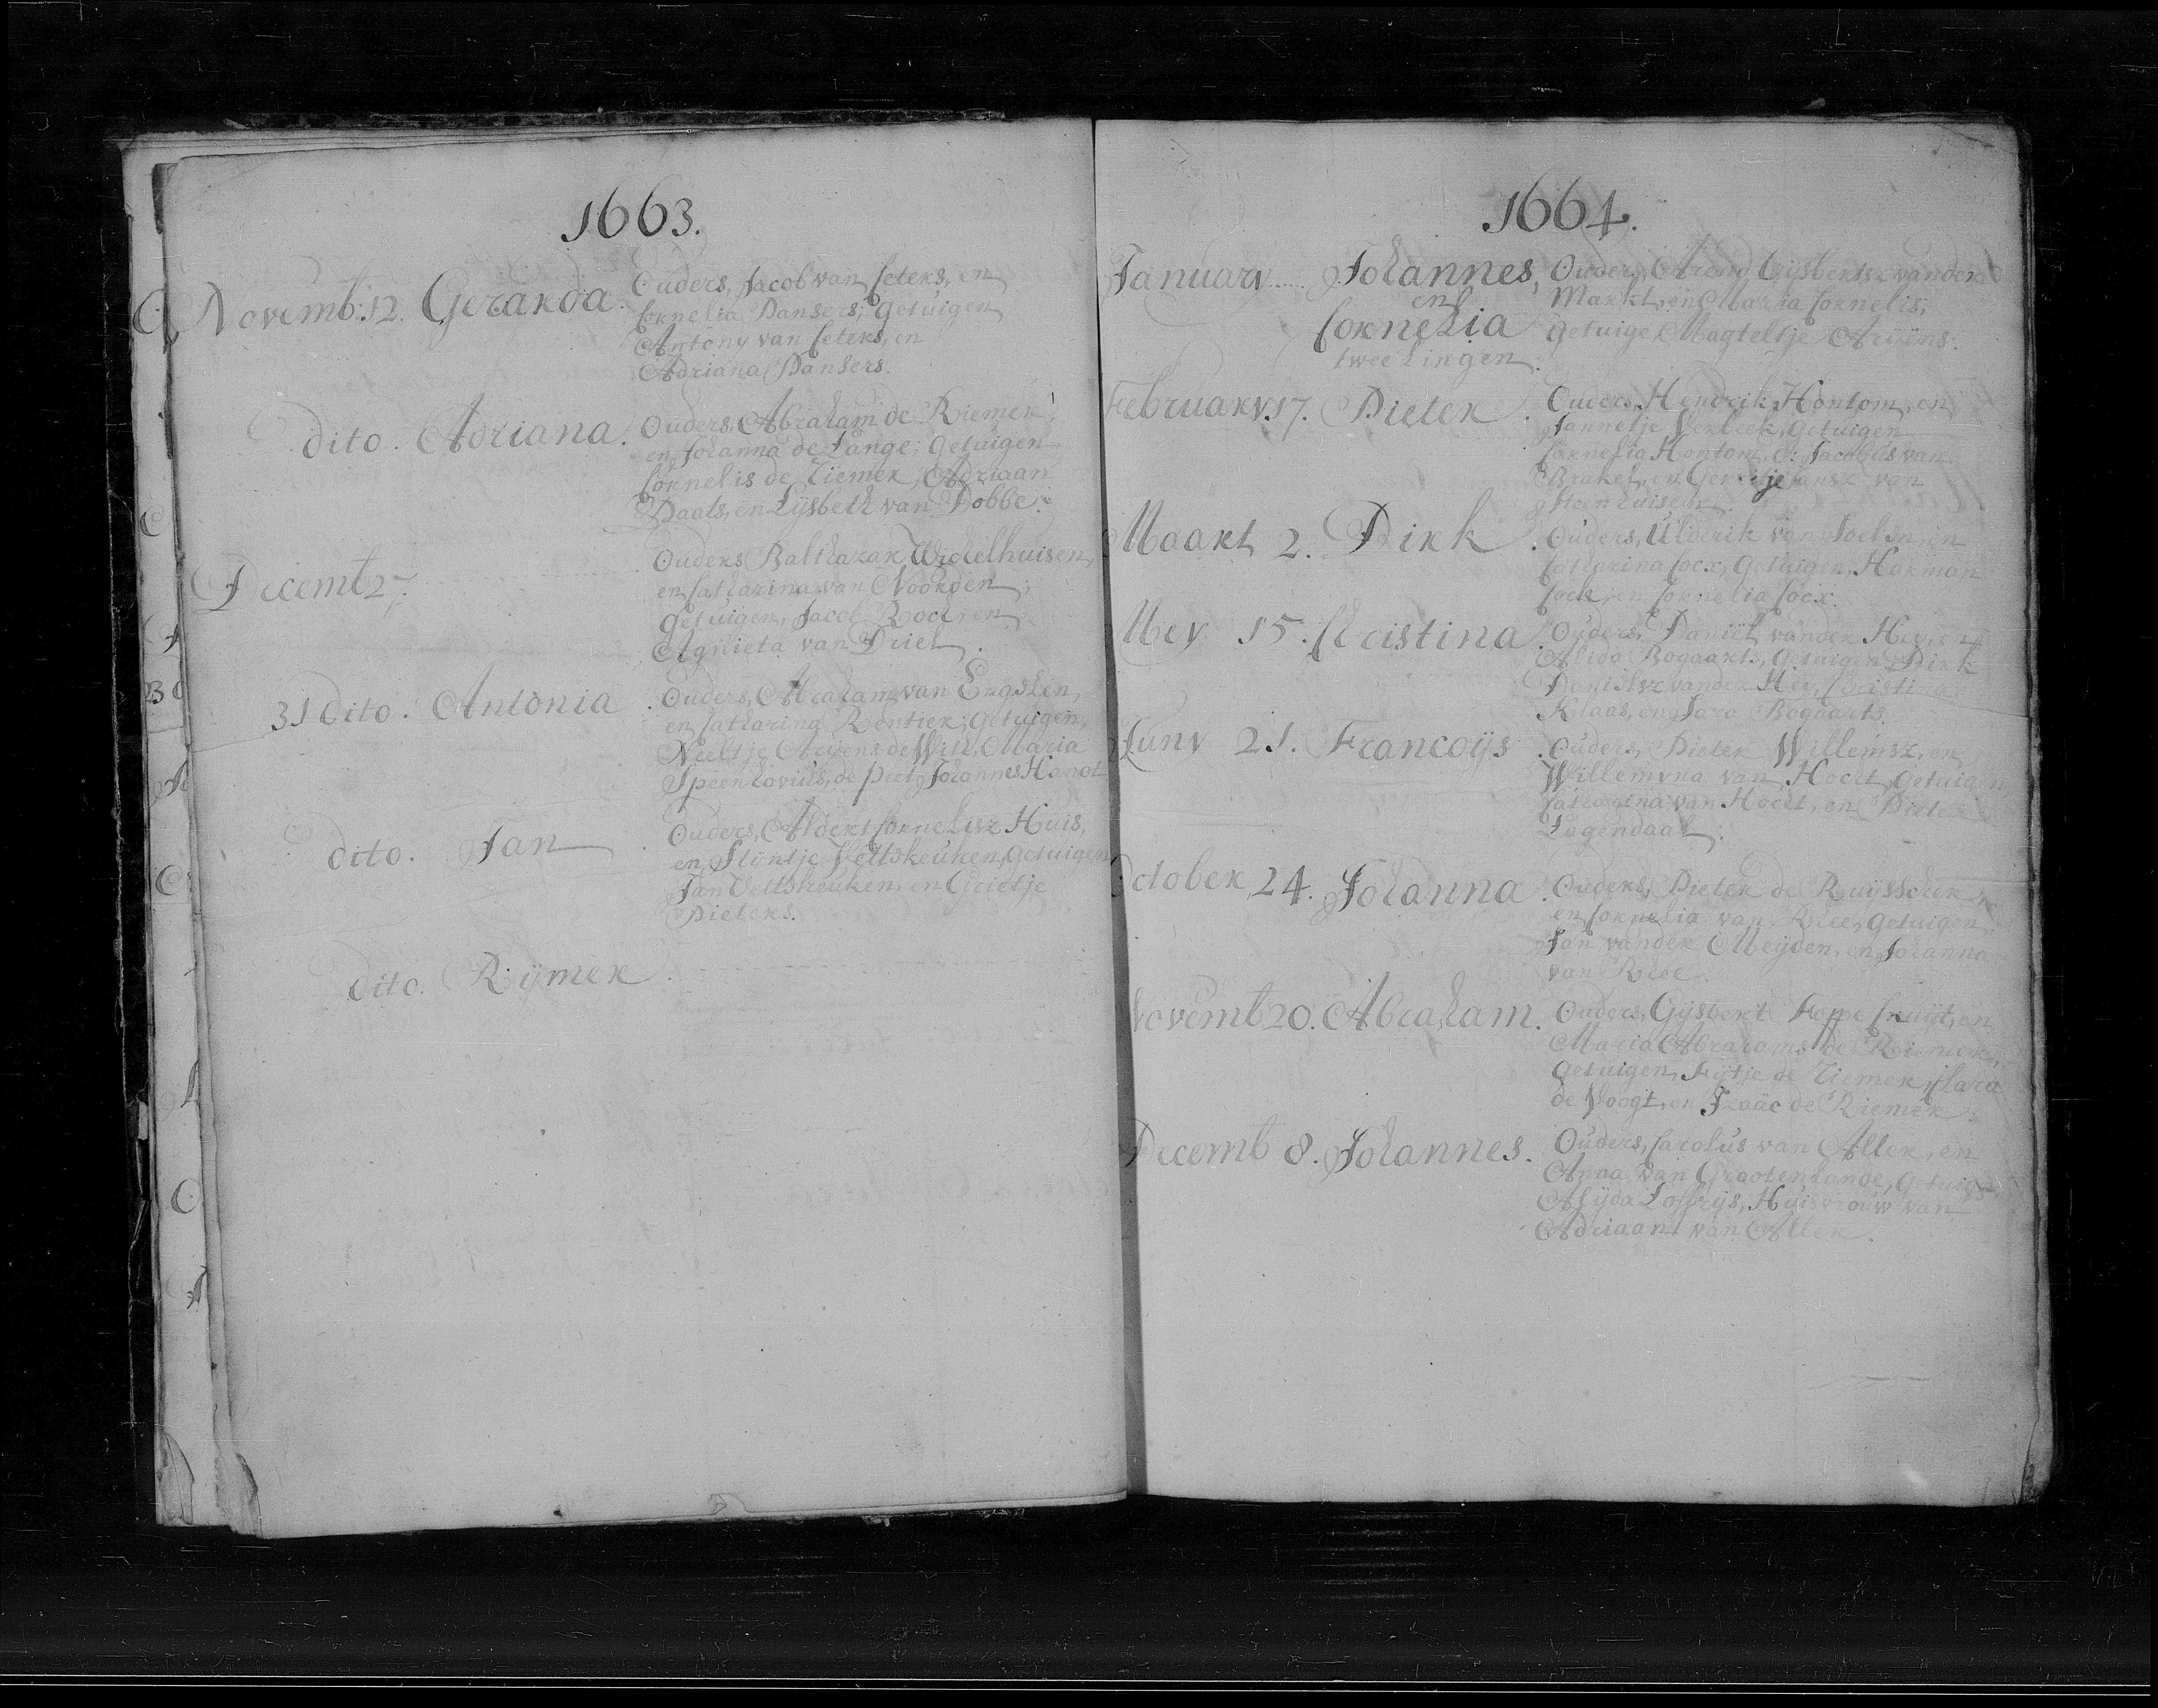 1663.
Novemb: 12. Gerarda. Ouders, Jacob van Ceters, en
Cornelia Dansers; getuigen
Antony van Ceters, en
Adriana Dansers.
dito. Adriana. Ouders, Abraham de Riemer,
en Johanna de Lange; getuigen
Cornelis de Riemer, Adriaan
Daals, en Lysbeth van Dobbe.
Decemb 27. Ouders Balthazar Wichelhuisen,
en Catharina van Noorden;
getuigen, Jacob Roch, en
Agnieta van Driel.
31 dito. Antonia. Ouders, Abraham van Engelen,
en Catharina Rentier; getuigen,
Neeltje Aryens de Wit, Maria
Speenhovius, de peet Johannes Hanot
dito. Jan. Ouders, Aldert Cornelisz Huis,
en Stijntje Veltskeuken, getuigen
Jan Veltskeuken, en Grietje
Pieters.
dito. Rijmer.
1664.
January Johannes, Ouders, Arend Gijsbertsz vander
en Markt, en Maria Cornelis;
Cornelia getuige, Magteltje Ariens.
tweelingen.
February. 17. Pieter. Ouders Hendrik Hontom, en
Jannetje Verbeek, getuigen
Cornelia Hontom, Jacobus van
Brakel, en Gerritje Jansz van
Steenhuisen.
Maart 2. Dirk. Ouders, Ulderik van Soelen, en
Catharina Cocx, getuigen, Harman
Cock, en Cornelia Cocx.
Mey 15. Christina. Ouders, Daniël vander Hey, en
Alida Bogaarts, getuigen, Dirk
Danielsz vander Hey, Christina
Klaas, en Sara Bogaarts.
Juny 21. Francoijs. Ouders, Pieter Willemsz, en
Willemyna van Hocht, getuigen
Catharina van Hocht, en Pieter
Lugendaal.
October 24. Johanna. Ouders, Pieter de Ruijsscher,
en Cornelia van Rhee, getuigen,
Jan vander Meijden, en Johanna
van Rhee.
Novemb 20. Abraham. Ouders, Gijsbert Foppe Cruijt, en
Maria Abrahams de Riemer,
getuigen, Fijtje de Riemer, Clara
de Voogt, en Izaäc de Riemer.
Decemb 8. Johannes. Ouders, Carolus van Aller, en
Anna van Grootenlande, getuige,
Alijda Loffrijs, Huisvrouw van
Adriaan van Aller.